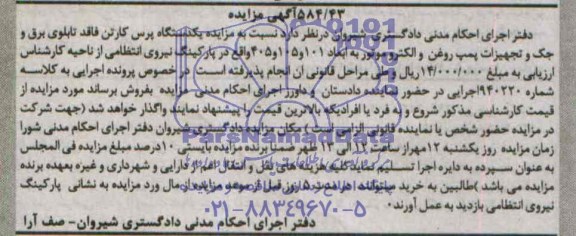 ۵۸۴/۴۳آگهی مزایده
دفتر اجرای احکام مدنی دادگستری شیروان درنظر دارد نسبت به مزایده یکدستگاه پرس کارتن فاقد تابلوی برق و
جک و تجهیزات پمپ روغن و الکتروموتور به ابعاد ۱۰۱و۱۰۵و۴۰۵واقع در پارکینگ نیروی انتظامی از ناحیه کارشناس
ارزیابی به مبلغ ۱۴/۰۰۰/۰۰۰ریال و طی مراحل قانونی آن انجام پذیرفته است. در خصوص پرونده اجرایی به کلاسه
شماره ۹۴۰۲۲۰اجرایی در حضور نماینده دادستان و داورز اجرای احکام مدنی مزایده بفروش برساند مورد مزایده از
قیمت کارشناسی مذکور شروع و به فرد یا افرادیکه بالاترین قیمت را پیشنهاد نمایند واگذار خواهد شد (جهت شرکت
در مزایده حضور شخص یا نماینده قانونی الزامی است) مکان مزایده دادگستری شیروان دفتر اجرای احکام مدنی شورا
زمان مزایده روز یکشنبه ۱۲مهراز ساعت ۱۱ الی ۱۲ ظهر ضمنا برنده مزایده بایستی ۱۰درصد مبلغ مزایده فی المجلس
به عنوان سپرده به دایره اجرا تسلیم نماید کلیه هزینه های نقل و انتقال اعم از دارایی و شهرداری و غیره بعهده برنده
مزایده می باشد )طالبین به خرید میتوانند در مدت ۵ روز قبل از موعد مزایده از مال مورد مزایده به نشانی پارکینگ
نیروی انتظامی بازدید به عمل آورند.
دفتر اجرای احکام مدنی دادگستری شیروان- صف آرا
ParsNamadData
۰۲۱-۸۸۳۴۹۶۷۰-۵